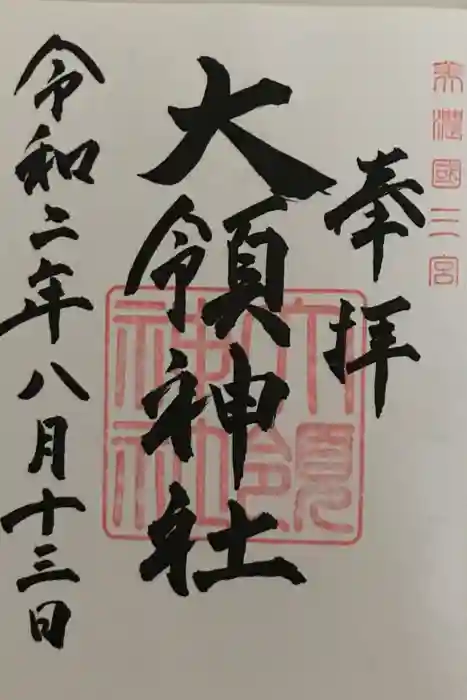 美濃國二宮
奉拝
大領神社
大領神社
令和二年八月十三日